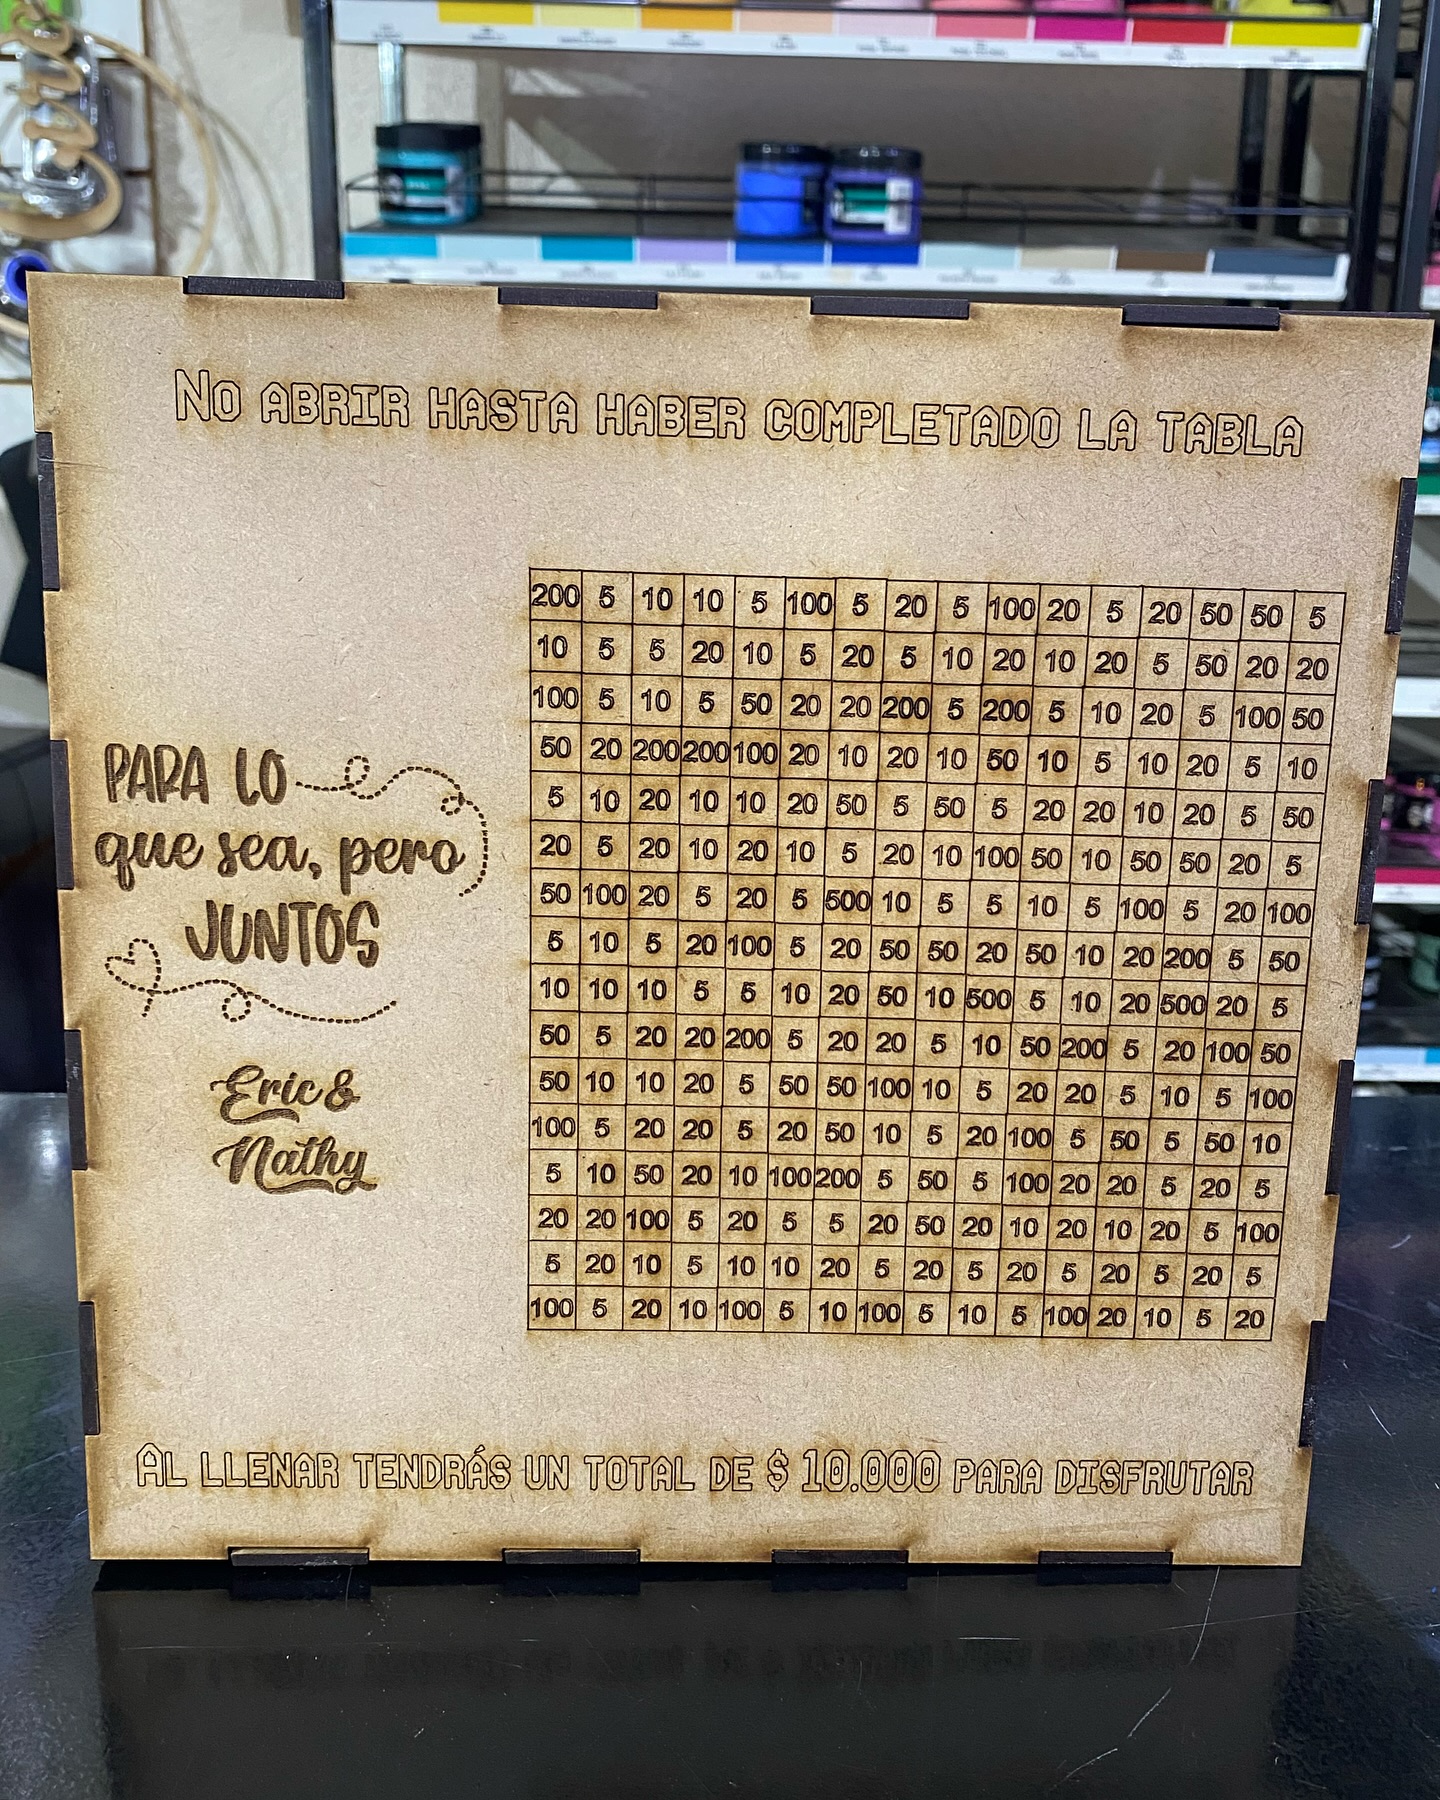 No abrir hasta haber completado la tabla
200 5 10 10 5 100 5 20 5 100 20 5 20 50 50 5
10 5 5 20 10 5 20 5 10 20 10 20 5 50 20 20
100 5 10 5 50 20 20 200 5 200 5 10 20 5 100 50
50 20 200 200 100 20 10 20 10 50 10 5 10 20 5 10
5 10 20 10 10 20 50 5 50 5 20 20 10 20 5 50
20 5 20 10 20 10 5 20 10 100 50 10 50 50 20 5
50 100 20 5 20 5 500 10 5 5 10 5 100 5 20 100
5 10 5 20 100 5 20 50 50 20 50 10 20 200 5 50
10 10 10 5 5 10 20 50 10 500 5 10 20 500 20 5
50 5 20 20 200 5 20 20 5 10 50 200 5 20 100 50
50 10 10 20 5 50 50 100 10 5 20 20 5 10 5 100
100 5 20 20 5 20 50 10 5 20 100 5 50 5 50 10
5 10 50 20 10 100 200 5 50 5 100 20 20 5 20 5
20 20 100 5 20 5 5 20 50 20 10 20 10 20 5 100
5 20 10 5 10 10 20 5 20 5 20 5 20 5 20 5
100 5 20 10 100 5 10 100 5 10 5 100 20 10 5 20
PARA LO
que sea, pero
JUNTOS
Eric &
Nathy
Al llenar tendrás un total de $ 10.000 para disfrutar